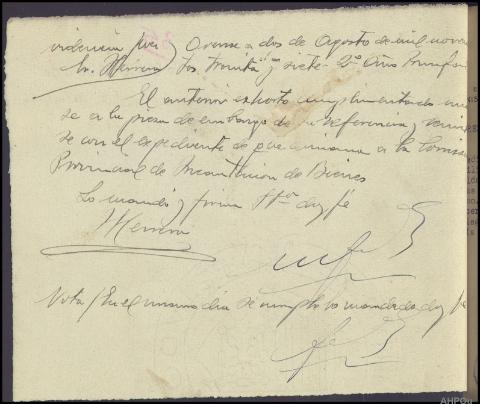 videncia Juez Orense a dos de Agosto de mil nove
Sr. Herrera tos treinta y siete- 2º Año Triunfal
El anterior exhorto cumplimentado un
se a la pieza de embargo de su referencia y remi
se con el expediente de que dimana a la Comisi
Provincial de Incautación de Bienes
Lo mandó y firma SSª doy fé
Herrera
Nota / En el mismo dia se cumple lo mandado doy fé
AHPOu